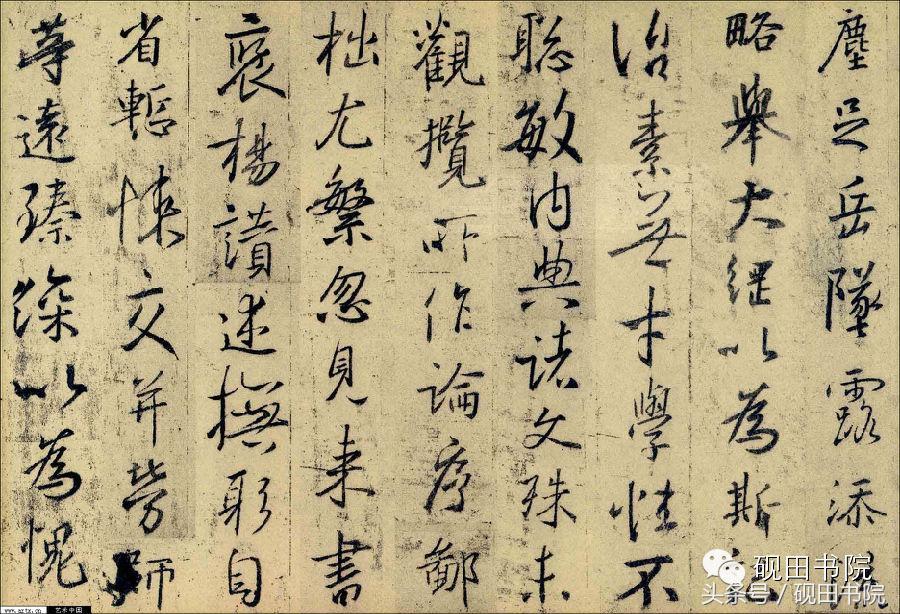 塵足岳墜露添
略舉大綱以為斯
治素無才學性不
聰敏內典諸文殊未
觀攬所作論序鄙
拙尤繁忽見来書
褒揚讃述撫躬自
省慙悚交并勞師
等遠臻深以為愧
砚田书院
头条号/砚田书院
www.artx.cn 艺术中国